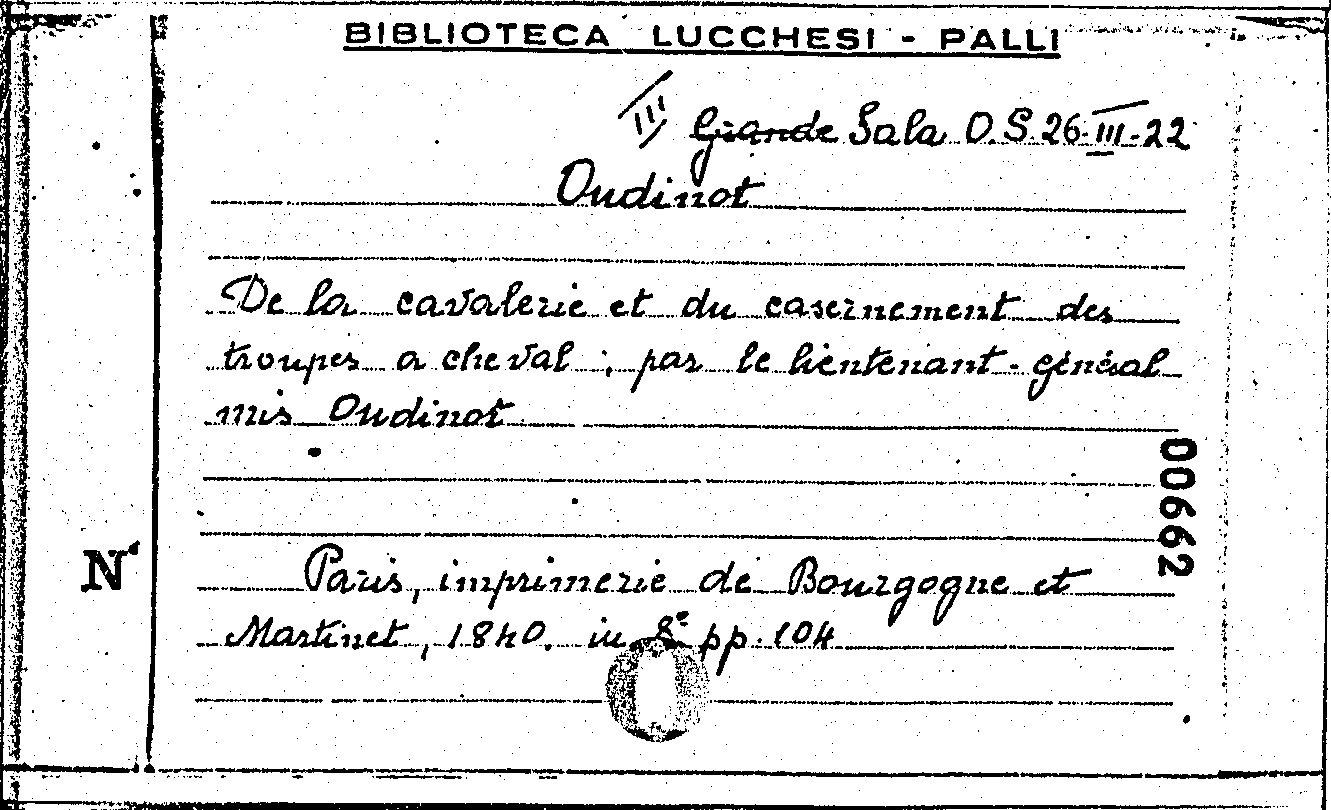 BIBLIOTECA LUCCHESI - PALLI
III Grande Sala O.S. 26-III-22
Oudinot
De la cavalerie et du casernement des
troupes a cheval ; par le lieutenant-général
mis Oudinot
00662
N
Paris, imprimerie de Bourgogne et
Martinet, 1840. in 8º pp. 104